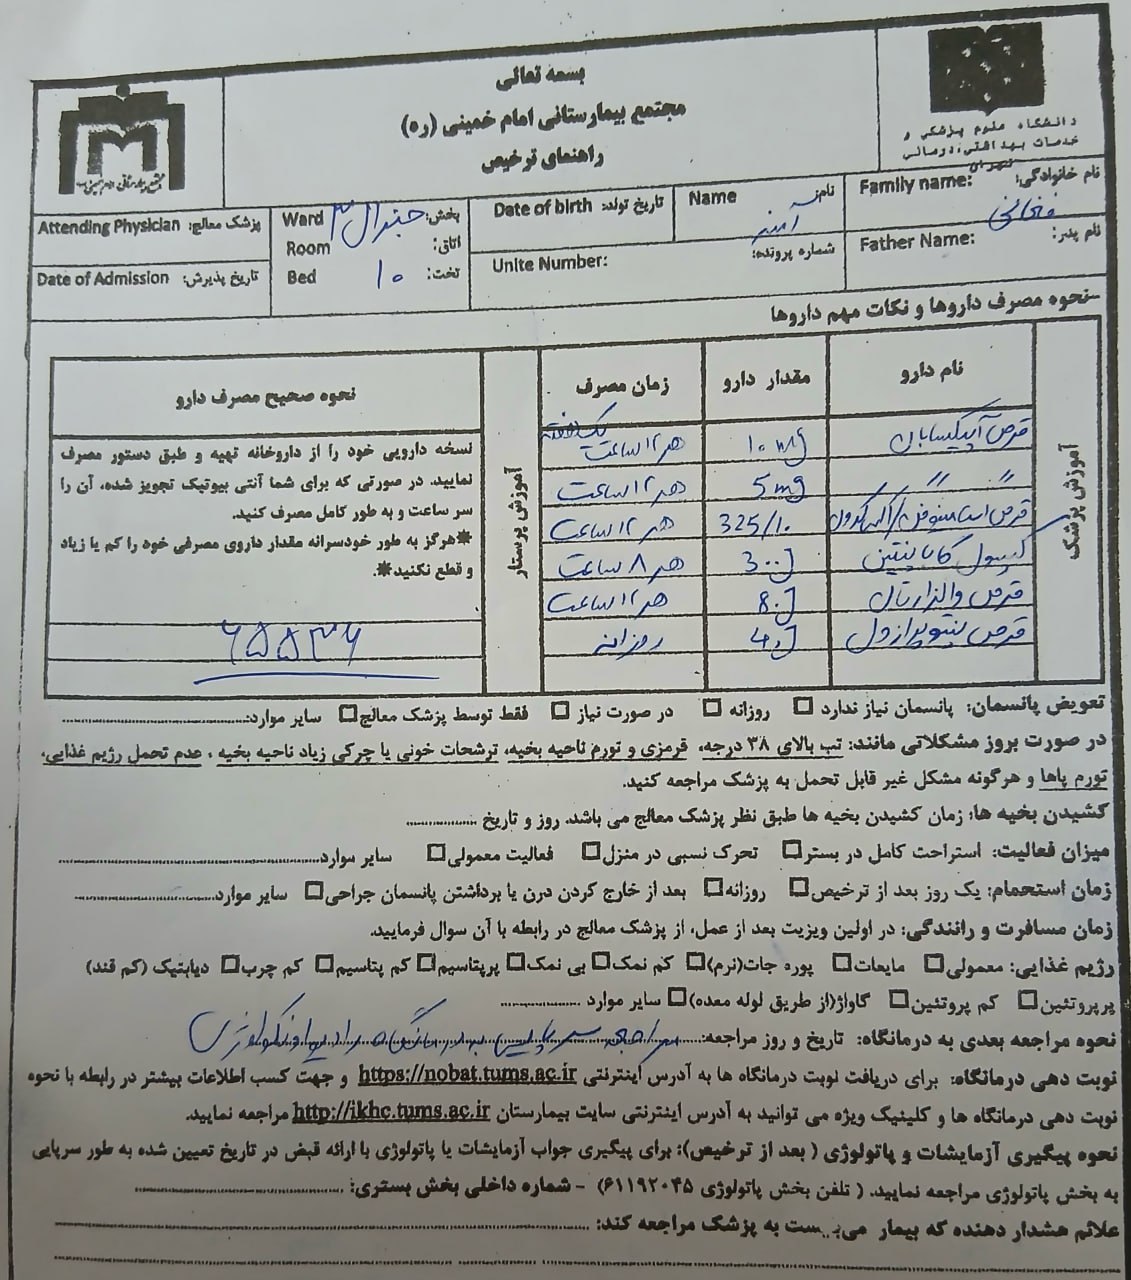 بسمه تعالی
مجتمع بیمارستانی امام خمینی (ره)
راهنمای ترخیص
دانشگاه علوم پزشکی و
خدمات بهداشتی، درمانی
تهران
نام خانوادگی: Family name:
فغانی
نام پدر: Father Name:
نام: Name
شماره پرونده:
تاریخ تولد: Date of birth
Unite Number:
بخش: جنرال ۳ Ward
اتاق: Room
تخت: ۱۰ Bed
پزشک معالج: Attending Physician
تاریخ پذیرش: Date of Admission
نحوه مصرف داروها و نکات مهم داروها
آموزش پزشک
نام دارو مقدار دارو زمان مصرف
قرص آپیکسابان 10 mg هر ۱۲ ساعت یک هفته
" " " 5 mg هر ۱۲ ساعت
قرص استامینوفن / 325/10 هر ۱۲ ساعت
کپسول گاباپنتین ۳۰۰ هر ۸ ساعت
قرص والزارتان 80 هر ۱۲ ساعت
قرص پنتوپرازول 40 روزانه
آموزش پرستار
نحوه صحیح مصرف دارو
نسخه دارویی خود را از داروخانه تهیه و طبق دستور مصرف
نمایید. در صورتی که برای شما آنتی بیوتیک تجویز شده، آن را
سر ساعت و به طور کامل مصرف کنید.
*هرگز به طور خودسرانه مقدار داروی مصرفی خود را کم یا زیاد
و قطع نکنید*.
تعویض پانسمان: پانسمان نیاز ندارد □ روزانه □ در صورت نیاز □ فقط توسط پزشک معالج □ سایر موارد:....................
در صورت بروز مشکلاتی مانند: تب بالای ۳۸ درجه، قرمزی و تورم ناحیه بخیه، ترشحات خونی یا چرکی زیاد ناحیه بخیه، عدم تحمل رژیم غذایی،
تورم پاها و هرگونه مشکل غیر قابل تحمل به پزشک مراجعه کنید.
کشیدن بخیه ها: زمان کشیدن بخیه ها طبق نظر پزشک معالج می باشد. روز و تاریخ ....................
میزان فعالیت: استراحت کامل در بستر □ تحرک نسبی در منزل □ فعالیت معمولی □ سایر موارد....................
زمان استحمام: یک روز بعد از ترخیص □ روزانه □ بعد از خارج کردن درن یا برداشتن پانسمان جراحی □ سایر موارد....................
زمان مسافرت و رانندگی: در اولین ویزیت بعد از عمل، از پزشک معالج در رابطه با آن سوال فرمایید.
رژیم غذایی: معمولی □ مایعات □ پوره جات(نرم) □ کم نمک □ بی نمک □ پرپتاسیم □ کم پتاسیم □ کم چرب □ دیابتیک (کم قند)
پرپروتئین □ کم پروتئین □ گاواژ(از طریق لوله معده) □ سایر موارد ....................
نحوه مراجعه بعدی به درمانگاه: تاریخ و روز مراجعه: مراجعه سرپایی به درمانگاه رادیوانکولوژی
نوبت دهی درمانگاه: برای دریافت نوبت درمانگاه ها به آدرس اینترنتی https://nobat.tums.ac.ir و جهت کسب اطلاعات بیشتر در رابطه با نحوه
نوبت دهی درمانگاه ها و کلینیک ویژه می توانید به آدرس اینترنتی سایت بیمارستان http://ikhc.tums.ac.ir مراجعه نمایید.
نحوه پیگیری آزمایشات و پاتولوژی ( بعد از ترخیص): برای پیگیری جواب آزمایشات یا پاتولوژی با ارائه قبض در تاریخ تعیین شده به طور سرپایی
به بخش پاتولوژی مراجعه نمایید. ( تلفن بخش پاتولوژی ۶۱۱۹۲۰۴۵) - شماره داخلی بخش بستری: ....................
علائم هشدار دهنده که بیمار به پزشک مراجعه کند: ....................